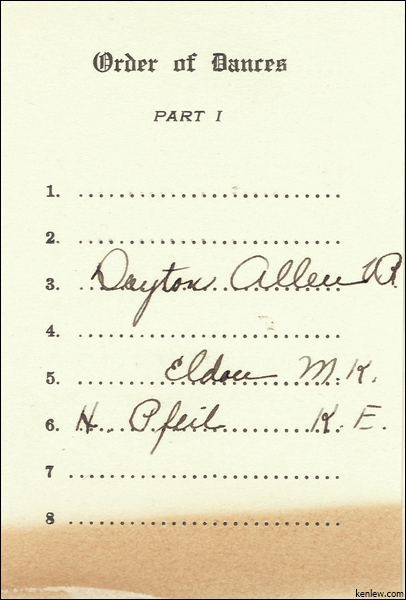 Order of Dances
PART I
1.
2.
3. Dayton Allen
4.
5. Eldon M. K.
6. H. Pfeil K. E.
7
8
kenlew.com